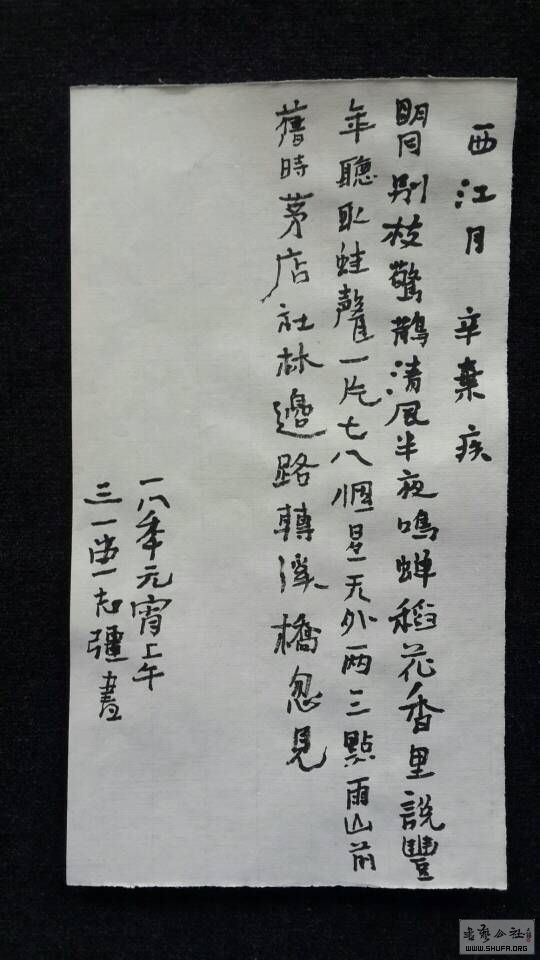 西江月 辛棄疾
明月別枝驚鵲清風半夜鳴蝉稻花香里說豐
年聽取蛙聲一片七八個星天外两三點雨山前
舊時茅店社林邊路轉溪橋忽見
一八年元宵上午
三一志彊書
书艺公社
WWW.SHUFA.ORG